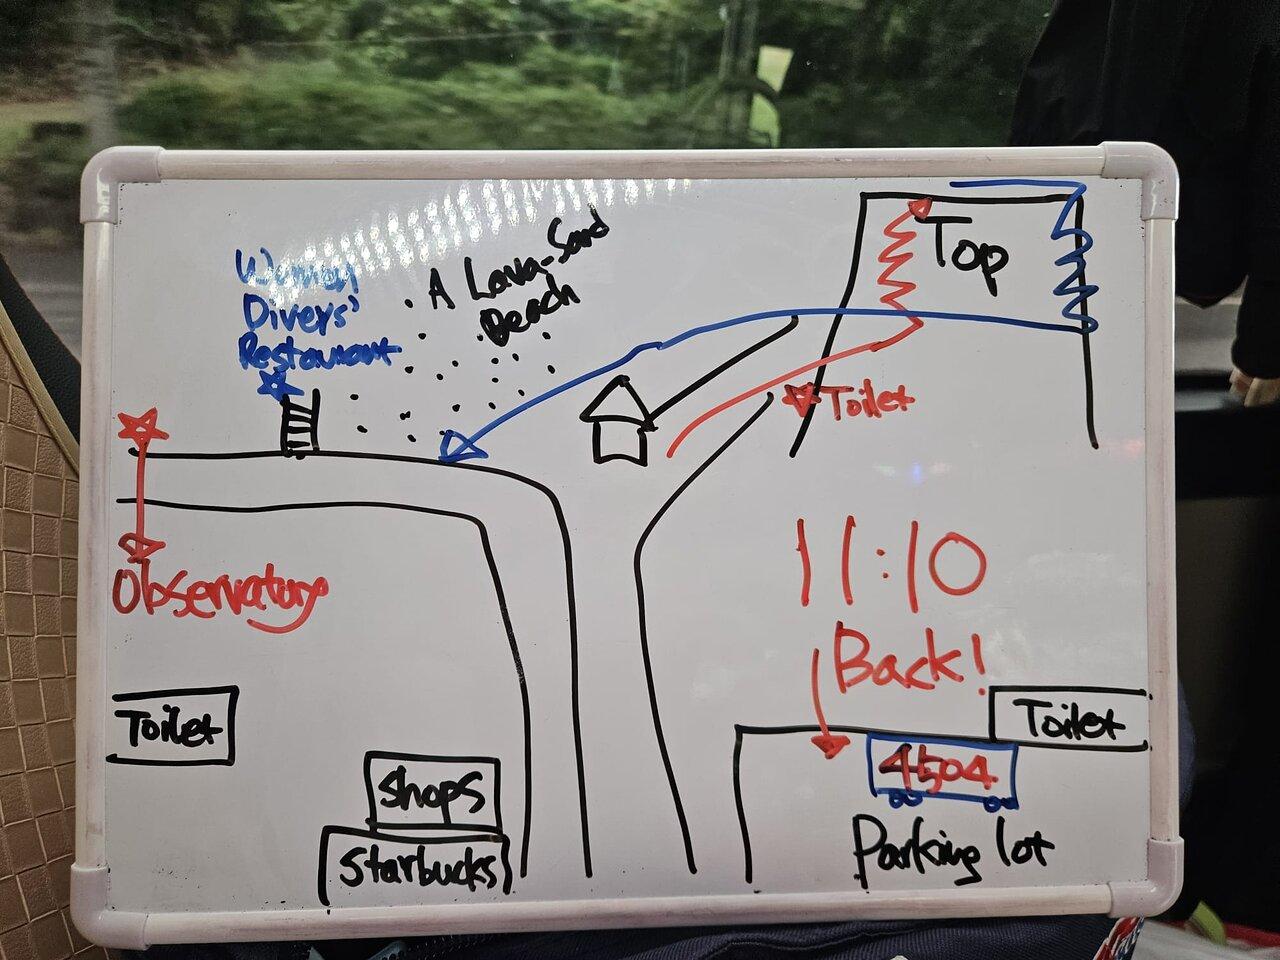 Top
A Lava-Sand
Beach
Women
Divers'
Restaurant
Toilet
Observatory
11:10
Back!
Toilet
Toilet
4504
Parking lot
shops
Starbucks